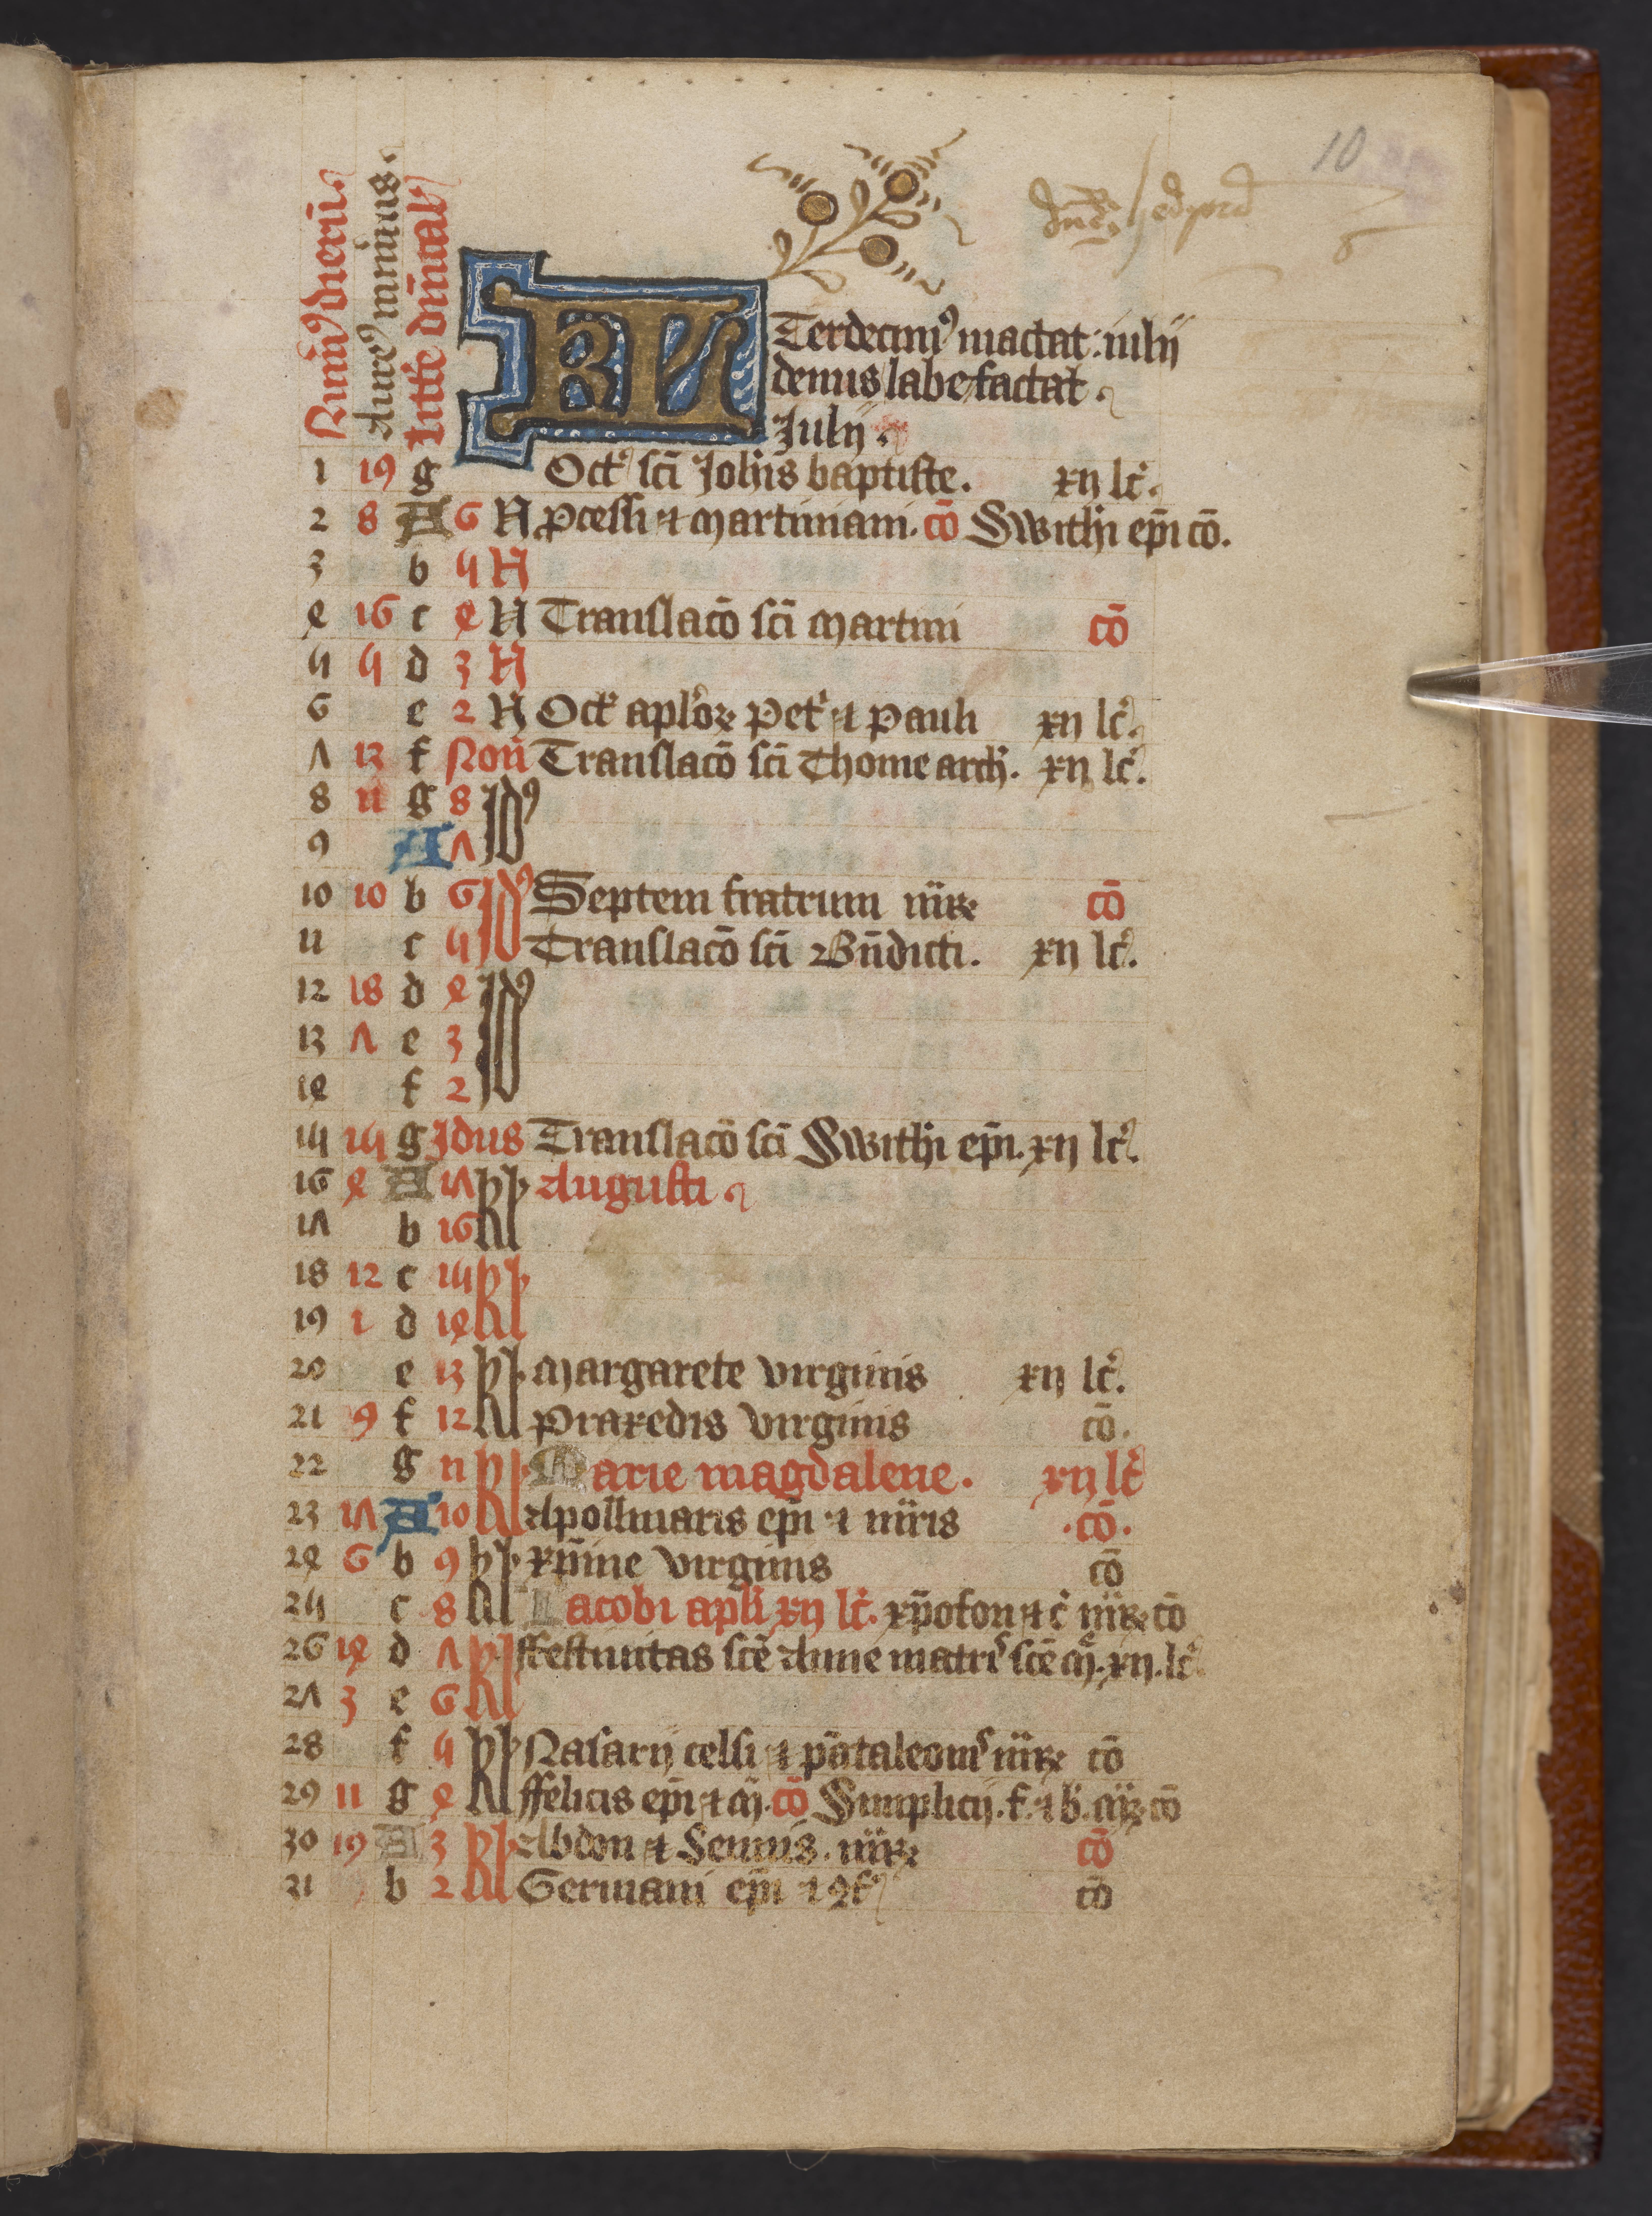 10
Numꝰ dierū
Aureꝰ numerus
litt̄e dn̄ical
KL Terdecimꝰ mactat: iulij
denus labefactat
Julij.
1 19 g Oct' sc̄i Joh̄is baptiste. xij lc̄.
2 8 A 6 N ꝓcessi ⁊ martiniani. cō Swithi ep̄i cō.
3 b 5 N
4 16 c 4 N Translacō sc̄i martini cō
5 5 d 3 N
6 e 2 N Oct' apl'oꝝ pet' ⁊ pauli xij lc̄.
7 13 f Non̄ Translacō sc̄i Thome arch'. xij lc̄.
8 2 g 8 Idꝰ
9 A 7
10 10 b 6 Idꝰ Septem fratrum m̄rꝝ cō
11 c 5 Translacō sc̄i Bn̄dicti. xij lc̄.
12 18 d 4 Idꝰ
13 7 e 3
14 f 2
15 15 g Idus Translacō sc̄i Swithi ep̄i. xij lc̄.
16 4 A 17 kl Augusti
17 b 16
18 12 c 15 kl
19 1 d 14
20 e 13 kl margarete virginis xij lc̄.
21 9 f 12 praxedis virginis cō.
22 g 11 kl Marie magdalene. xij lc̄
23 17 A 10 Apollinaris ep̄i ⁊ m̄ris .cō.
24 6 b 9 kl xp̄ine virginis cō
25 c 8 Iacobi apl'i xij lc̄. xp̄ofori ⁊ c' m̄rꝝ cō
26 14 d 7 kl ffestiuitas sc̄e Anne matrꝭ sc̄e m̄. xij. lc̄
27 3 e 6
28 f 5 kl Nasarij celsi ⁊ pātaleonꝭ m̄rꝝ cō
29 11 g 4 ffelicis ep̄i ⁊ m̄. cō Simplicij. f. ⁊ b'. m̄rꝝ cō
30 19 A 3 kl Abdon ⁊ Sennis. m̄rꝝ cō
31 b 2 Germani ep̄i ⁊ ꝯf' cō